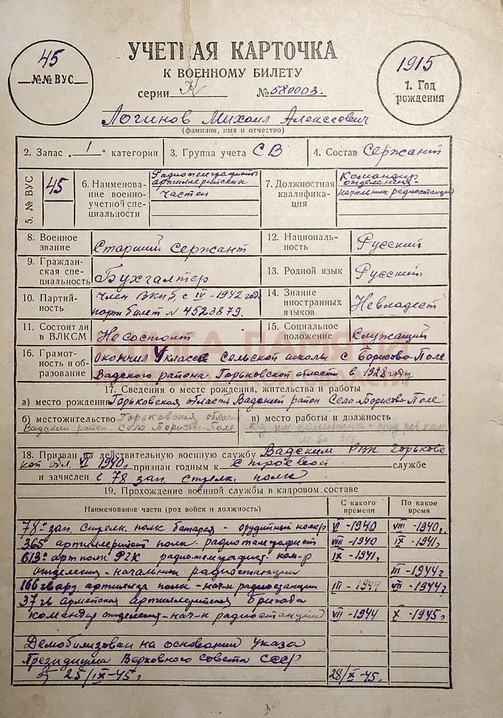 45
№№ ВУС
УЧЕТНАЯ КАРТОЧКА
К ВОЕННОМУ БИЛЕТУ
серии К № 580003.
1915
1. Год
рождения
Логинов Михаил Алексеевич
(фамилия, имя и отчество)
2. Запас 1 категории
3. Группа учета СВ
4. Состав Сержант
5. № ВУС
45
6. Наименова-
ние военно-
учетной спе-
циальности
Радиотелеграфисты
артиллерийских
частей
7. Должностная
квалифика-
ция
Командир
отделения
начальник радиостанции
8. Военное
звание
Старший Сержант
12. Националь-
ность
Русский
9. Граждан-
ская спе-
циальность
Бухгалтер
13. Родной язык
Русский
10. Партий-
ность
Член ВКПб, с IV-1942 года
парт билет N 4523879.
14. Знание
иностранных
языков
Невладеет
11. Состоит ли
в ВЛКСМ
Несостоит
15. Социальное
положение
Служащий
16. Грамот-
ность и об-
разование
окончил 4 класса Сельской школы с Борисово-Поле
Вадского района Горьковской области в 1928 году
17. Сведения о месте рождения, жительства и работы
а) место рождения Горьковская область Вадский район Село Борисово-Поле
б) местожительство Горьковская область
Вадский район Село Борисово-Поле
в) место работы и должность
18. Призван на действительную военную службу Вадским РВК Горьковс
кой обл. VI 1940, признан годным к Строевой службе
и зачислен с 78 зап. стрелк. полк
19. Прохождение военной службы в кадровом составе
Наименование части (род войск и должность)
С какого
времени
По какое
время
78 зап. стрелк. полк батарея - орудийный номер VI-1940 VIII-1940.
365 артиллерийст полк. радиотелеграфист VIII-1940 IX-1941.
613 арт полк РГК радиотелеграфист ком-р IX-1941.
отделения - начальник радиостанции III-1944 г
166 гвард. артполк полк - нач-к радиостанции III-1944 VII-1944 г
37 Армейская артиллерийская бригада
командир отделения - нач-к радиостанции VII-1944 X-1945 г
Демобилизован на основании Указа
Президиума Верховного Совета СССР
от 25/IX-45 г. 28/X-45.